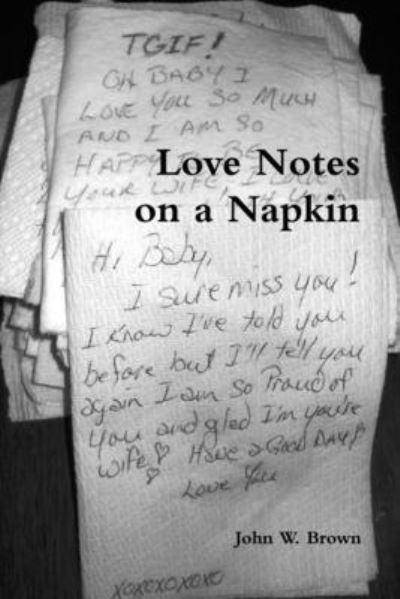 TGIF!
OH BABY I
LOVE YOU SO MUCH
AND I AM SO
HAPPY TO BE
YOUR WIFE, I
Love Notes
on a Napkin
Hi Baby,
I sure miss you!
I know I've told you
before but I'll tell you
again I am so Proud of
you and glad I'm you're
wife♡ Have a Good DAY!
♡ Love You
XOXOXOXOXO
John W. Brown